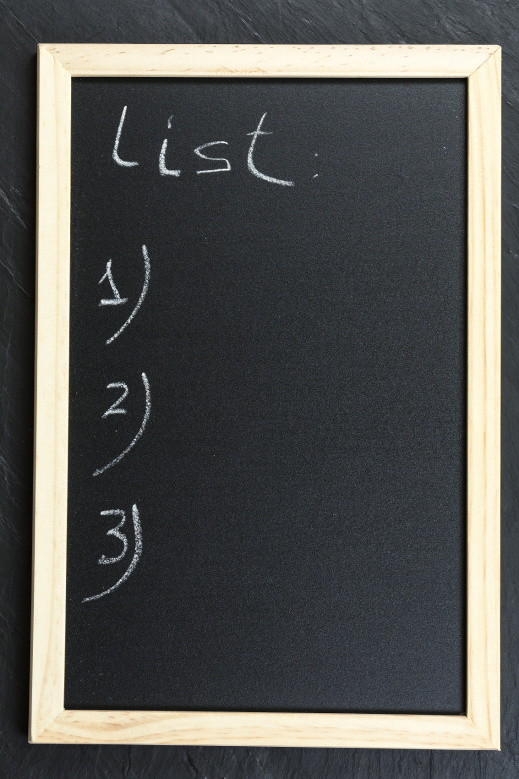 List:
1)
2)
3)